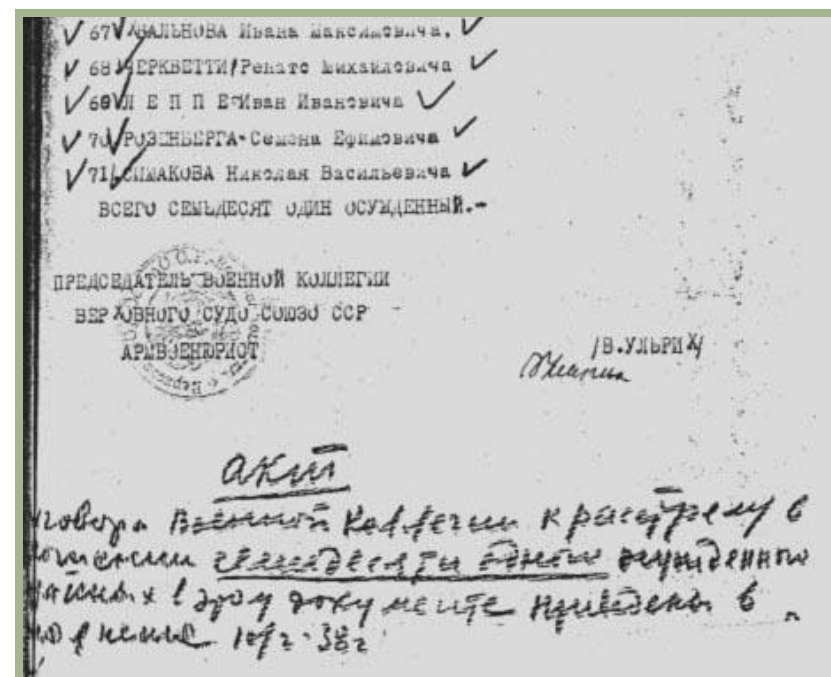 67 АВАЛЬНОВА Ивана Максимовича.
68 ЧЕРКВЕТТИ/Ренато Михайловича
69 Л Е П П Е Иван Ивановича
70 РОЗЕНБЕРГА-Семена Ефимовича
71 СИМАКОВА Николая Васильевича
ВСЕГО СЕМЬДЕСЯТ ОДИН ОСУЖДЕННЫЙ.-
ПРЕДСЕДАТЕЛЬ ВОЕННОЙ КОЛЛЕГИИ
ВЕРХОВНОГО СУДО СОЮЗО ССР
АРМВОЕНЮРИСТ
/В.УЛЬРИХ/
акт
говора Военной Коллегии к расстрелу в
ношении семидесяти одного осужденного
занных в этом документе приведены в
38г